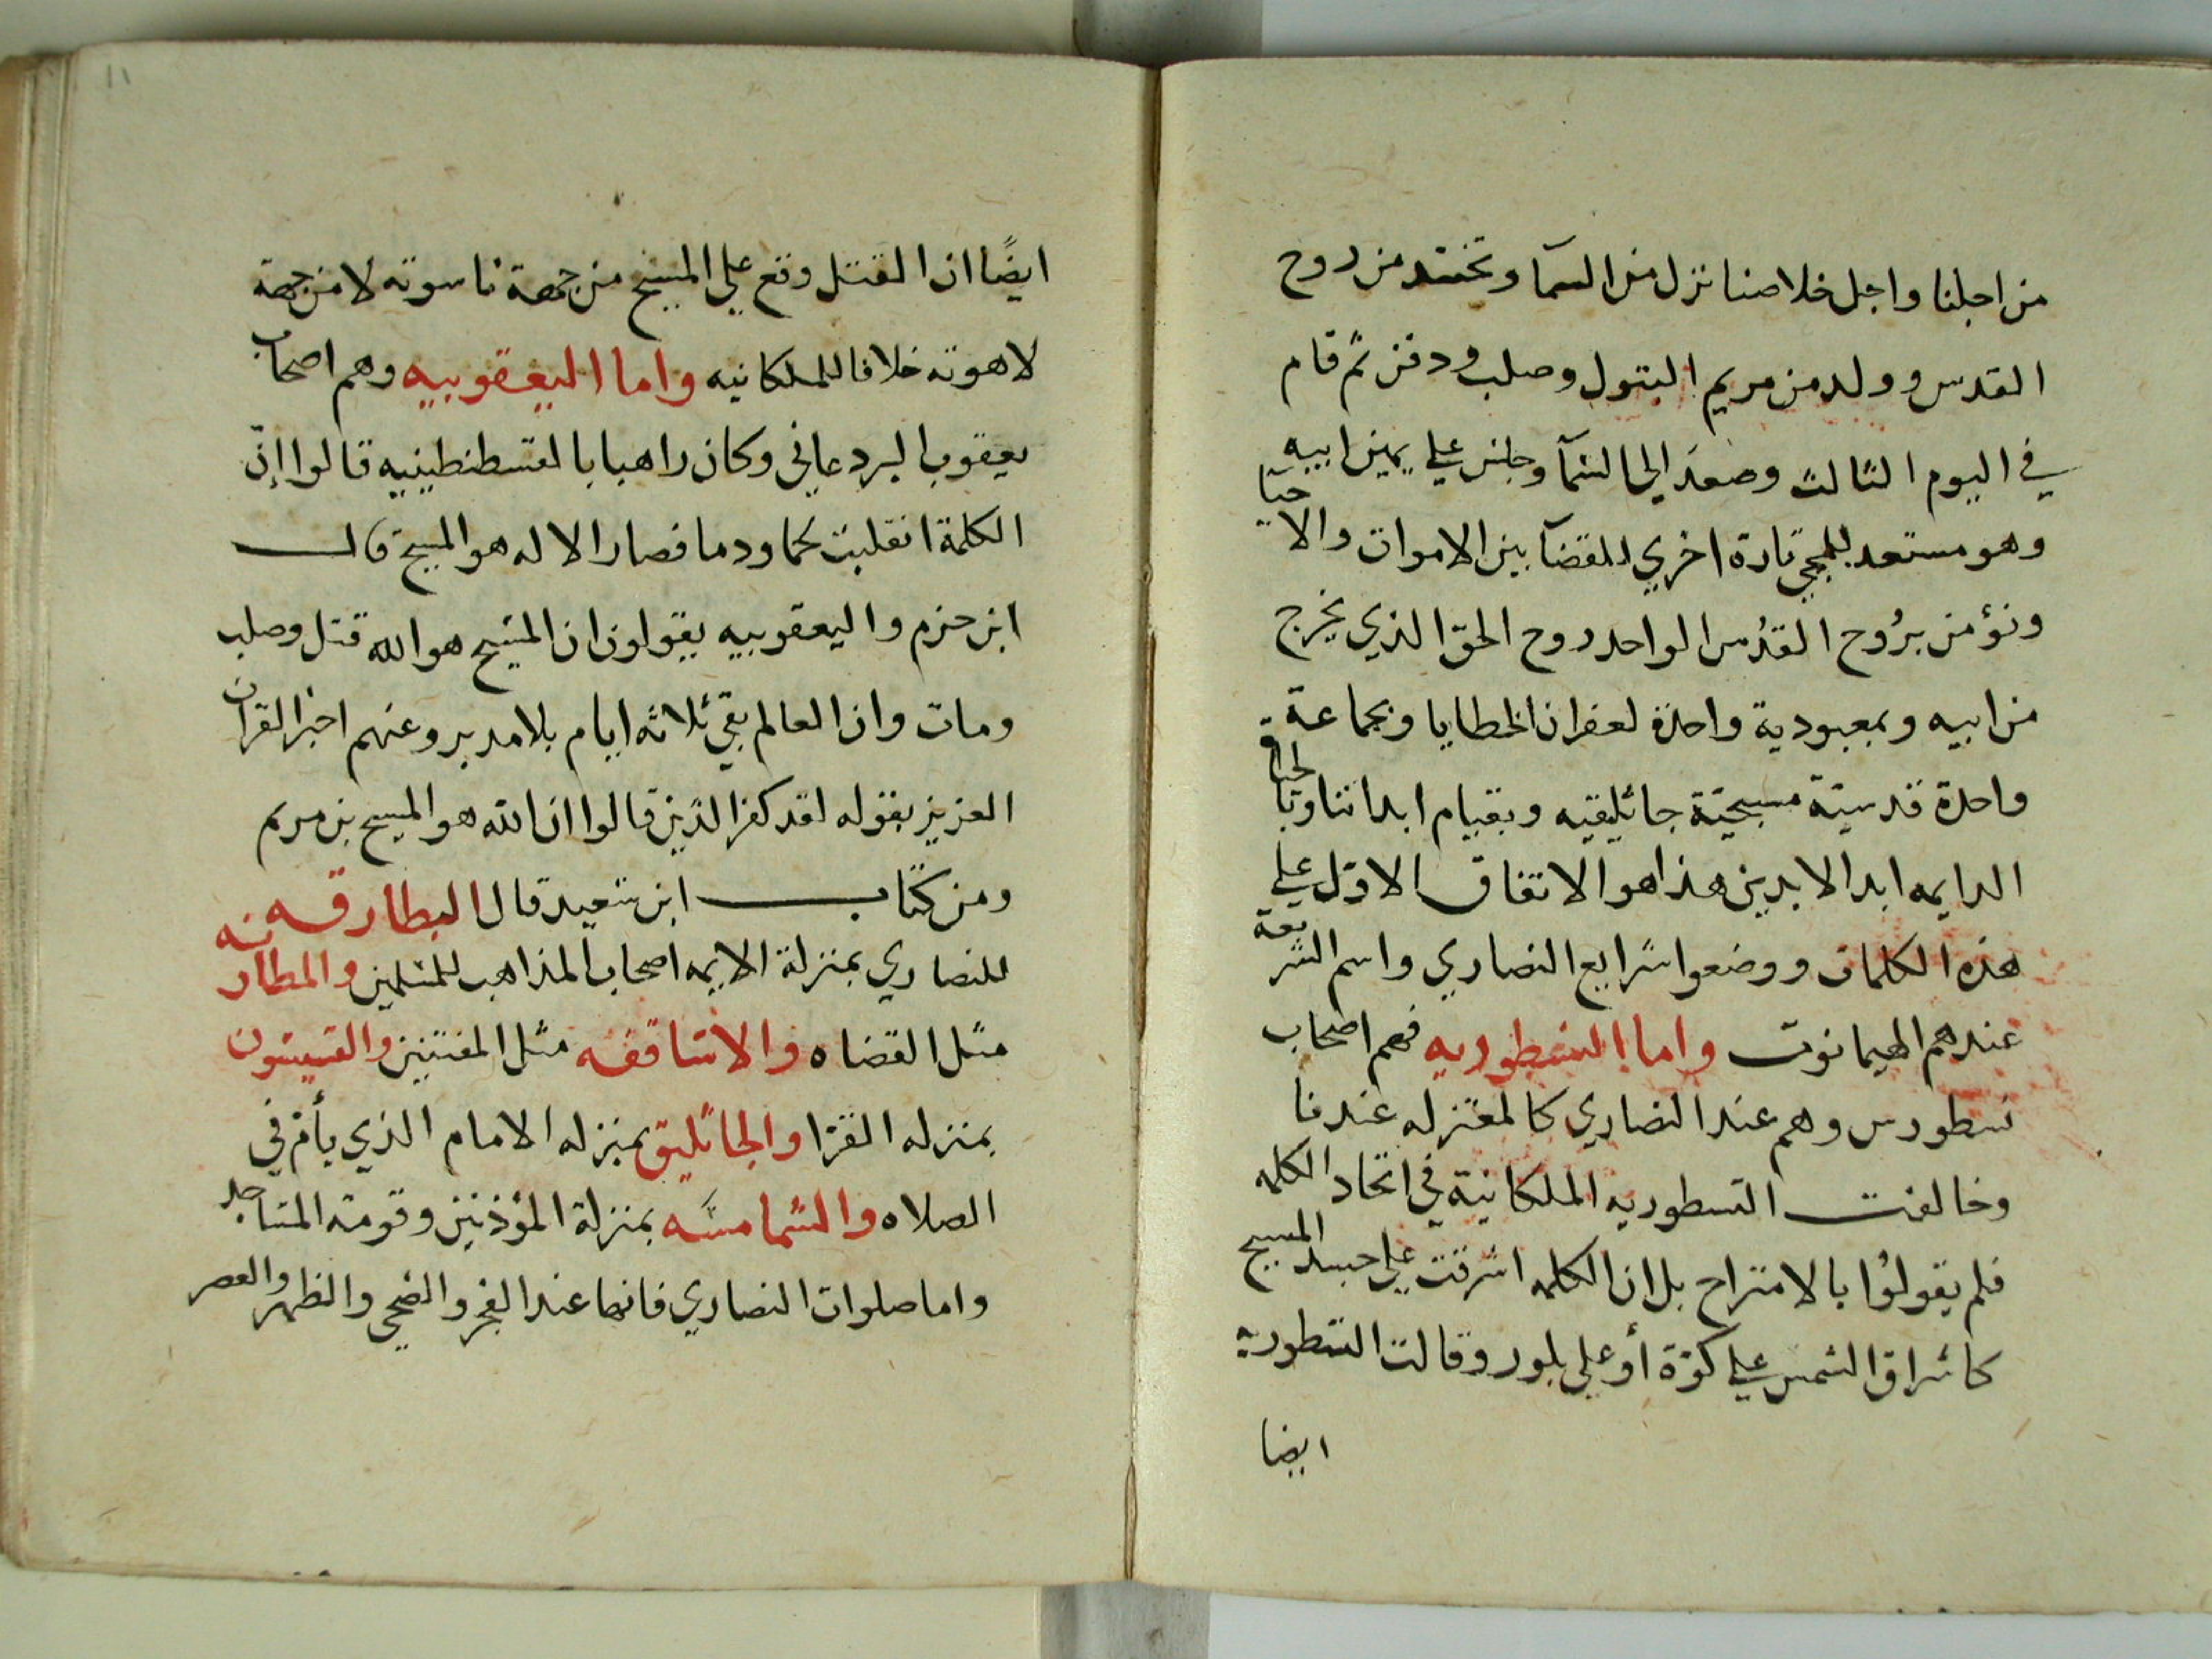 من اجلنا واجل خلاصنا نزل من السمآ وتجسد من روح
القدس وولد من مريم البتول وصلب ودفن ثم قام
في اليوم الثالث وصعد الي السمآ وجلس علي يمين ابيه
وهو مستعد للمجي تارة اخري للقضآ بين الاموات والاحيا
ونؤمن برُوح القدُس الواحد روح الحق الذي يخرج
من ابيه وبمعبودية واحدة لعفران الخطايا وبجماعة
واحدة قدسية مسيحيّة جاثليقيه وبقيام ابداننا وبالحياة
الدايمه ابد الابدين هذا هو الاتفاق الاول علي
هذه الكلمات ووضعوا شرايع النصاري واسم الشريعة
عندهم الهيمانوت واما النسطوريه فهم اصحاب
نسطورس وهم عند النصاري كالمعتزله عندنا
وخالفت النسطوريه الملكانية في اتحاد الكلمه
فلم يقولوُا بالامتزاج بل ان الكلمه اشرقت علي جسد المسيح
كاشراق الشمس علي كوّة أو علي بلور وقالت النسطورية
ايضا
١١
ايضًا ان القتل وقع علي المسيح من جهة ناسوته لا من جهة
لاهوته خلافا للملكانيه واما اليعقوبيه وهم اصحاب
يعقوب البردعاني وكان راهبا بالقسطنطينيه قالوا إنّ
الكلمة انقلبت لحما ودما فصار الاله هو المسيح قال
ابن حزم واليعقوبيه يقولون ان المسيح هو الله قتل وصلب
ومات وان العالم بقي ثلاثه ايام بلا مدبر وعنهم اخبر القران
العزيز بقوله لقد كفر الذين قالوا ان الله هو المسيح بن مريم
ومن كتاب ابن سعيد قال البطارقه
للنصاري بمنزلة الايمه اصحاب المذاهب للمسلمين والمطارنه
مثل القضاه والاساقفه مثل المفتين والقسيسون
بمنزله القرا والجاثليق بمنزله الامام الذي يأم في
الصلاه والشمامسَه بمنزلة المؤذنين وقومة المساجد
واما صلوات النصاري فانها عند الفجر والضحي والظهر والعصر